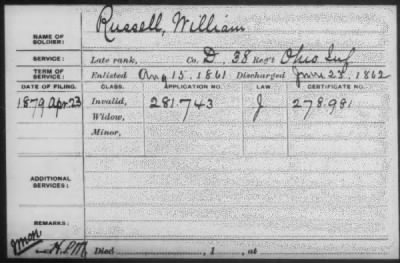 NAME OF SOLDIER: Russell, William
SERVICE: Late rank, Co. D, 38 Reg't Ohio Inf
TERM OF SERVICE: Enlisted Aug 15, 1861 Discharged June 23, 1862
DATE OF FILING. CLASS. APPLICATION NO. LAW CERTIFICATE NO.
1879 Apr. 23 Invalid, 281.743 J 278.981
Widow,
Minor,
ADDITIONAL SERVICES:
REMARKS:
Died , 1 , at